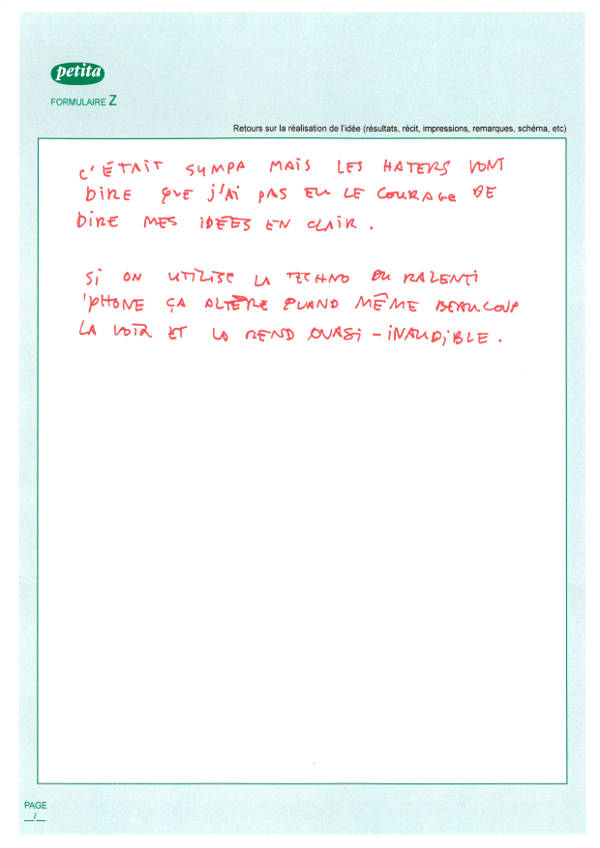 petita
FORMULAIRE Z
Retours sur la réalisation de l'idée (résultats, récit, impressions, remarques, schéma, etc)
C'ÉTAIT SYMPA MAIS LES HATERS VONT
DIRE QUE J'AI PAS EU LE COURAGE DE
DIRE MES IDÉES EN CLAIR.
SI ON UTILISE LA TECHNO DU RALENTI
'PHONE ÇA ALTÈRE QUAND MÊME BEAUCOUP
LA VOIX ET LA REND QUASI-INAUDIBLE.
PAGE
__/__